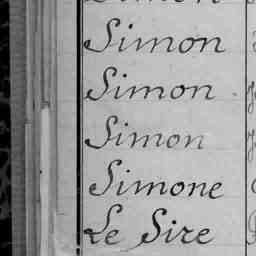 Simon
Simon
Simon
Simone
Le Sire